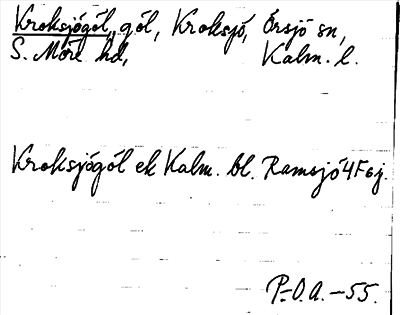 Kroksjögöl, göl, Kroksjö, Örsjö sn,
S. Möre hd, Kalm. l.
Kroksjögöl ek Kalm. bl. Ramsjö 4F6j.
P-O.A. -55.